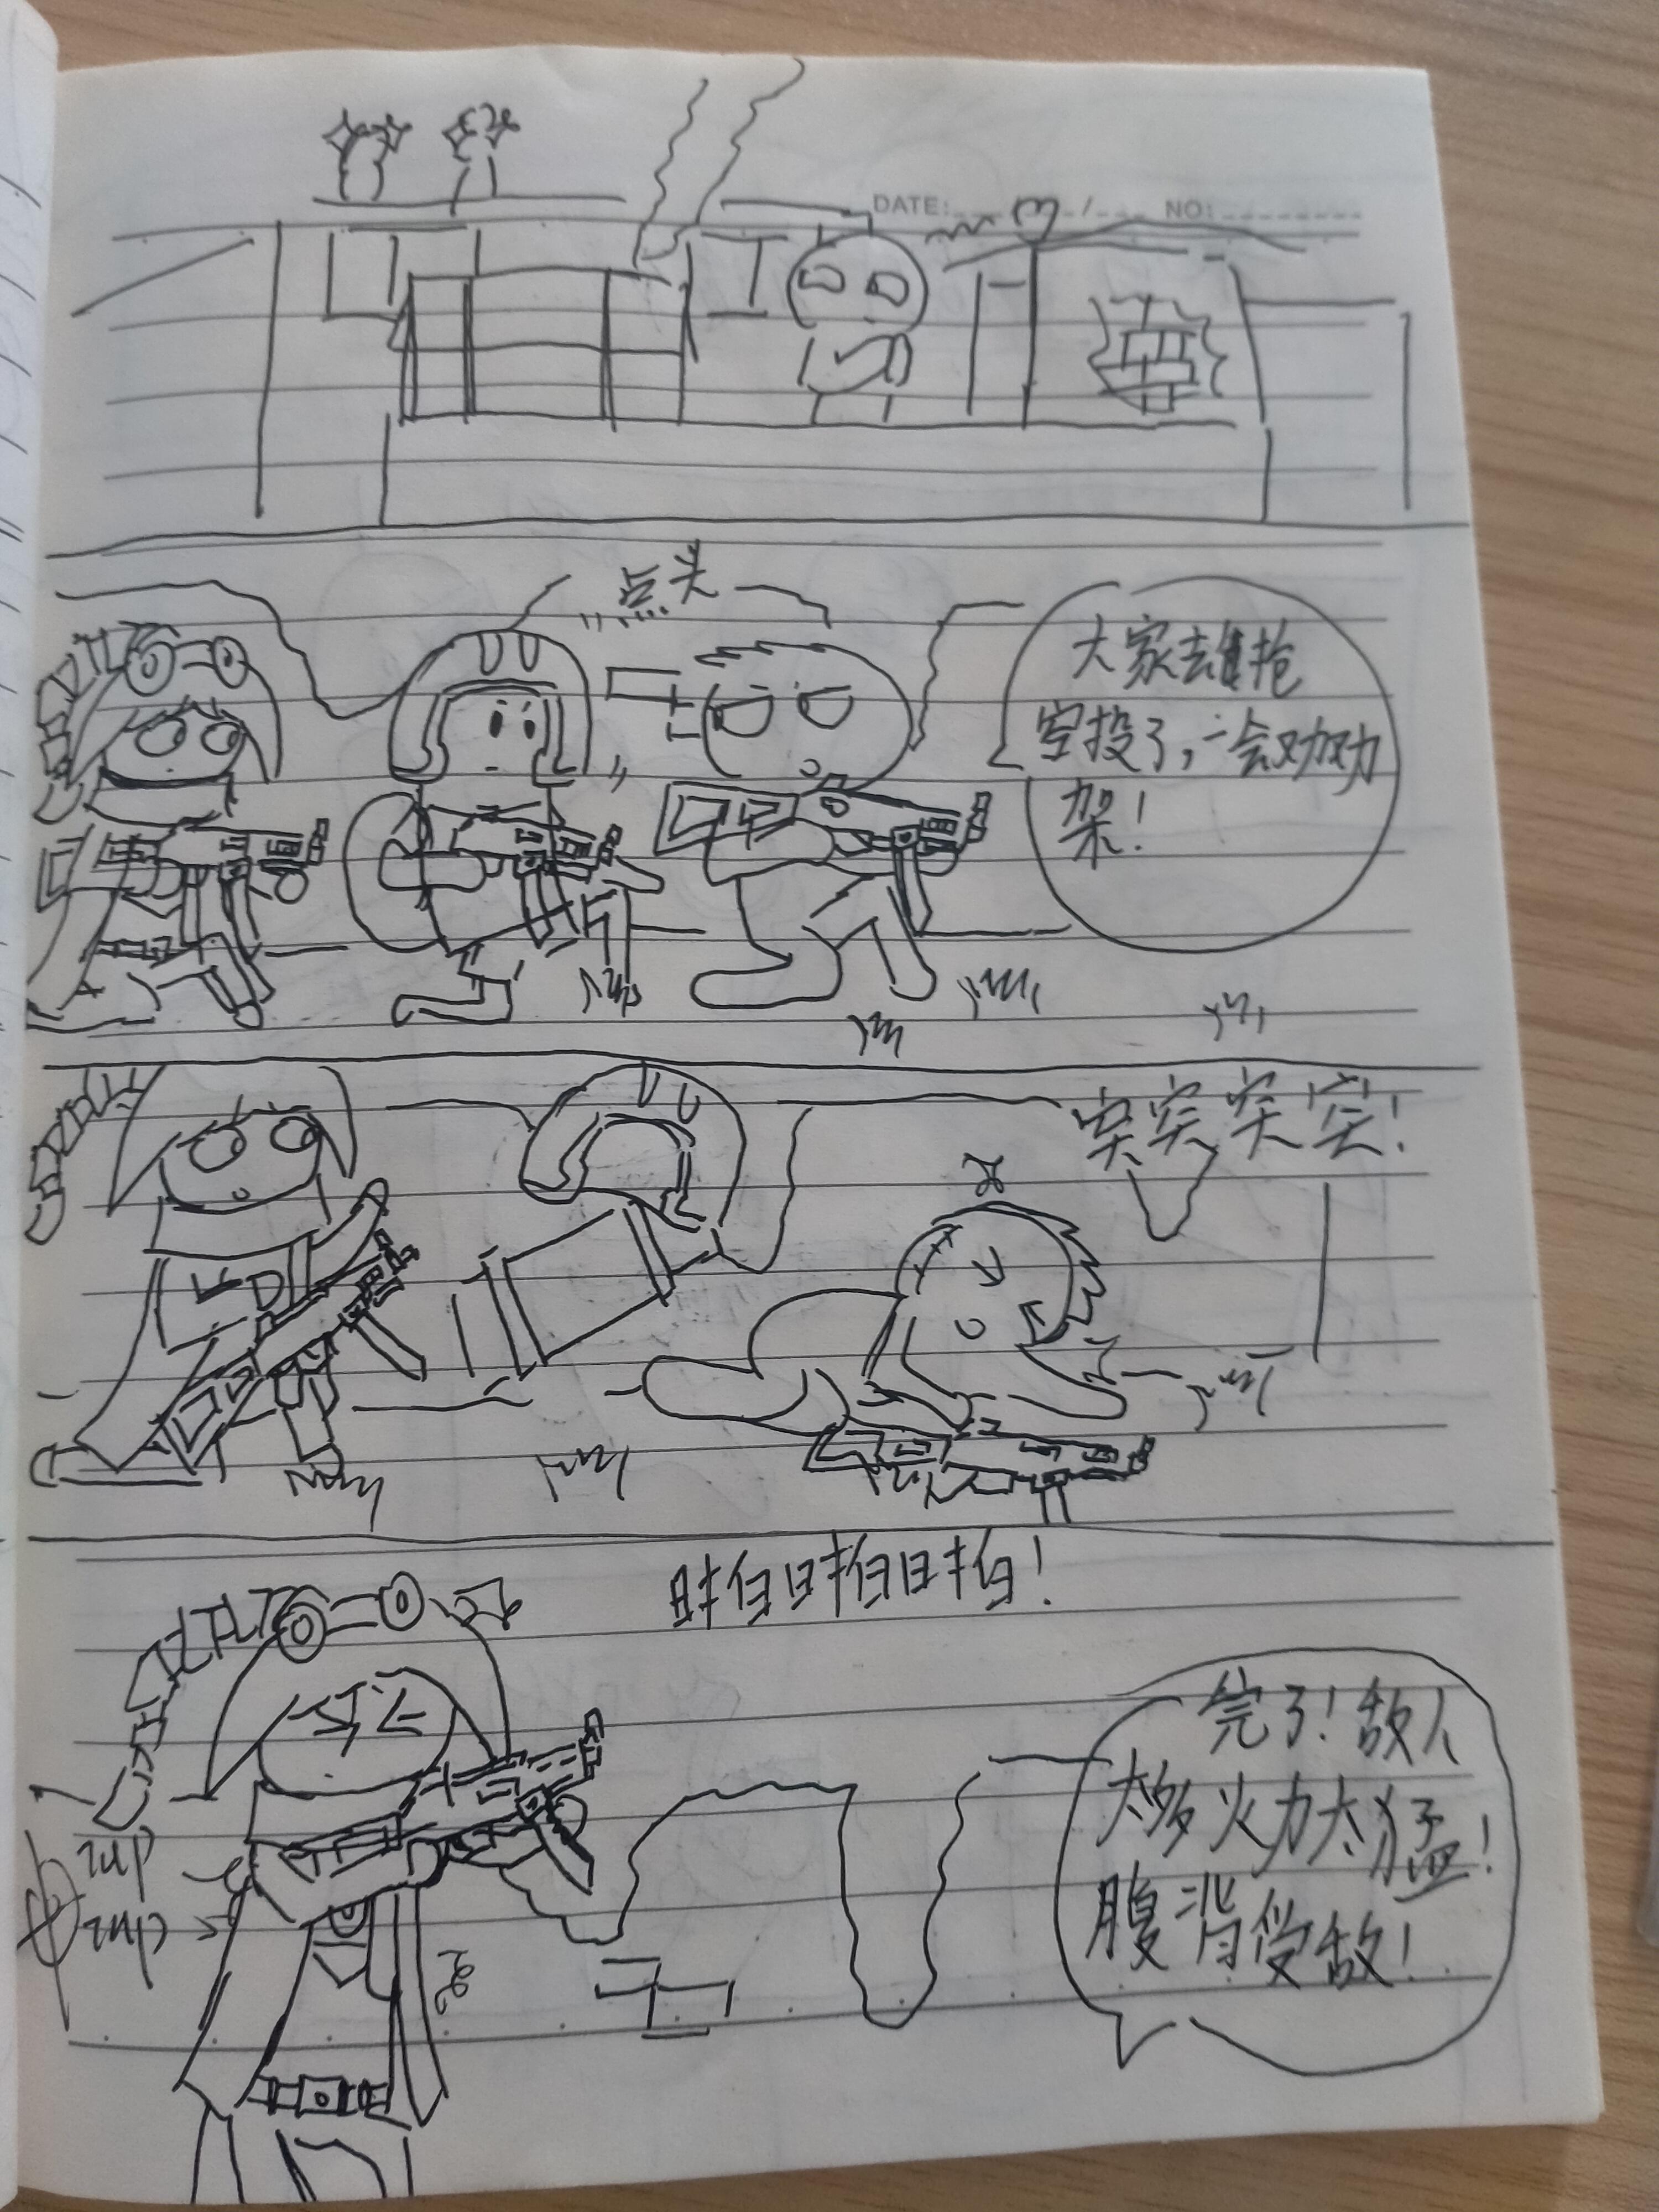 DATE: / NO:
点头
大家去抢
空投了,一会劝劝
架!
突突突突!
啪啪啪!
完了!敌人
太多火力太猛!
腹背受敌!